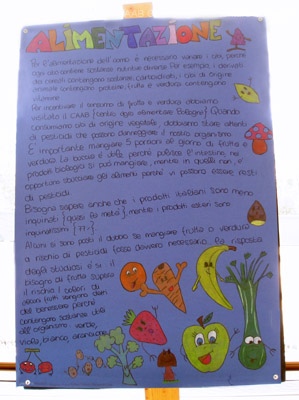 ALIMENTAZIONE
Per l'alimentazione dell'uomo è necessario variare i cibi, perché
ogni cibo contiene sostanze nutritive diverse. Per esempio i derivati
dei cereali contengono sostanze, carboidrati, i cibi di origine
animale contengono proteine, frutta e verdura contengono
vitamine.
Per incentivare il consumo di frutta e verdura abbiamo
visitato il CAAB (centro agro alimentare Bologna). Quando
consumiamo cibi di origine vegetale, dobbiamo stare attenti
ai pesticidi che possono danneggiare il nostro organismo.
È importante mangiare 5 porzioni al giorno di frutta e
verdura. La buccia è utile perché pulisce l'intestino, nei
prodotti biologici si può mangiare, mentre in quelli non, è
opportuno sbucciare gli alimenti perché vi possono essere resti
di pesticidi.
Bisogna sapere anche che i prodotti italiani sono meno
inquinati (quasi la metà), mentre i prodotti esteri sono
inquinatissimi
Alcuni si sono posti il dubbio se mangiare frutta o verdura
a rischio di pesticidi fosse davvero necessario. La risposta
degli studiosi è sì il
bisogno di frutta supera
il rischio. I colori di
questi frutti vengono detti
del benessere perché
contengono sostanze utili
all'organismo: verde,
viola, bianco, arancione,